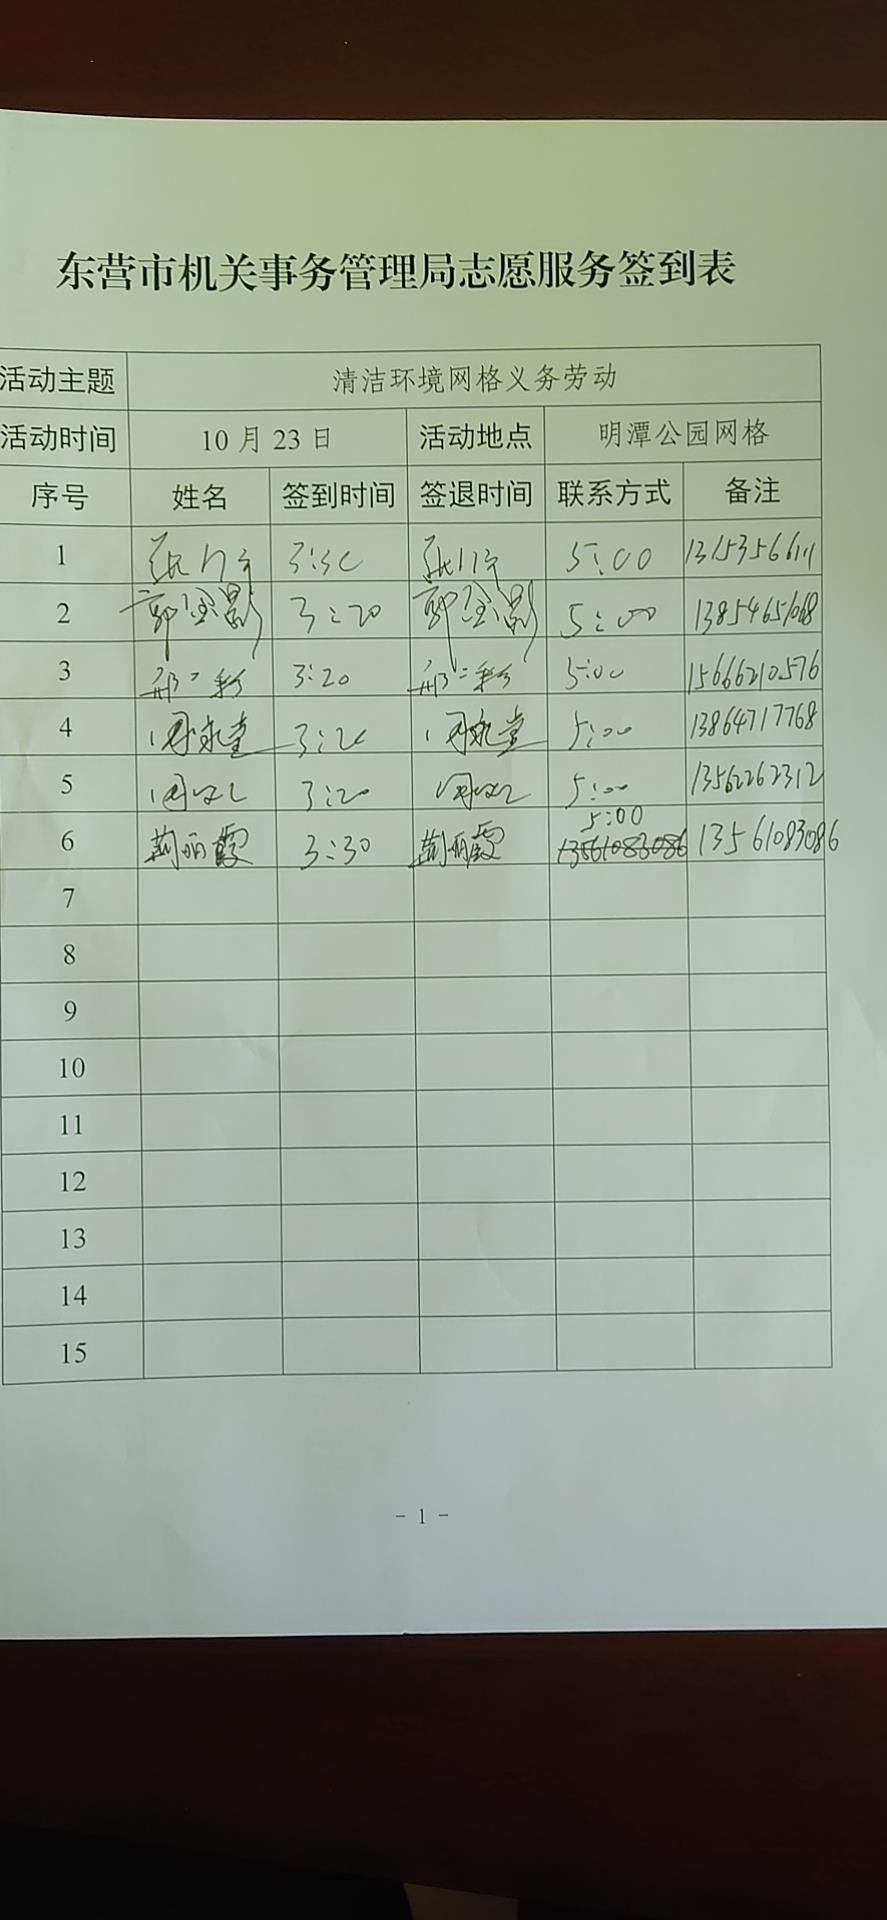 东营市机关事务管理局志愿服务签到表
活动主题 清洁环境网格义务劳动
活动时间 10月23日 活动地点 明潭公园网格
序号 姓名 签到时间 签退时间 联系方式 备注
1 5:00
2 郭金影 3:20 郭金影 5:00 13854651068
3 邢二彩 3:20 邢二彩 5:00 15666210576
4 3:20 5:00 13864717768
5 3:20 5:00 13562262312
5:00
6 荆丽霞 3:30 荆丽霞 13561083086 13561083086
7
8
9
10
11
12
13
14
15
- 1 -